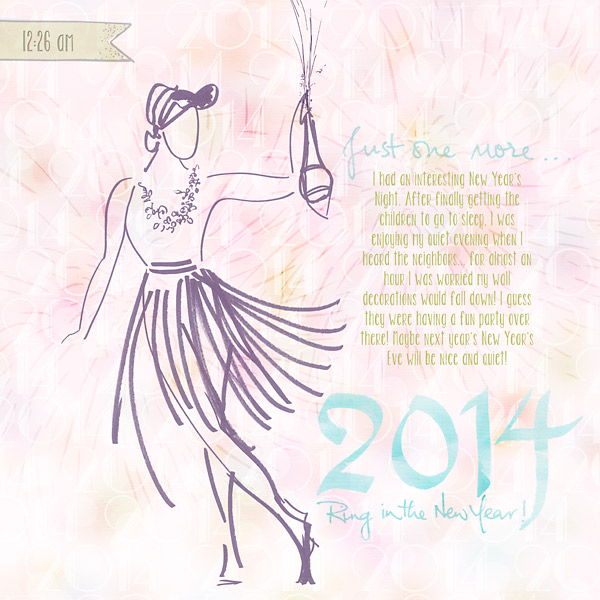 12:26 am
Just one more...
I had an interesting New Year's
Night. After finally getting the
children to go to sleep, I was
enjoying my quiet evening when I
heard the neighbors... for almost an
hour I was worried my wall
decorations would fall down! I guess
they were having a fun party over
there! Maybe next year's New Year's
Eve will be nice and quiet!
2014
Ring in the New Year!